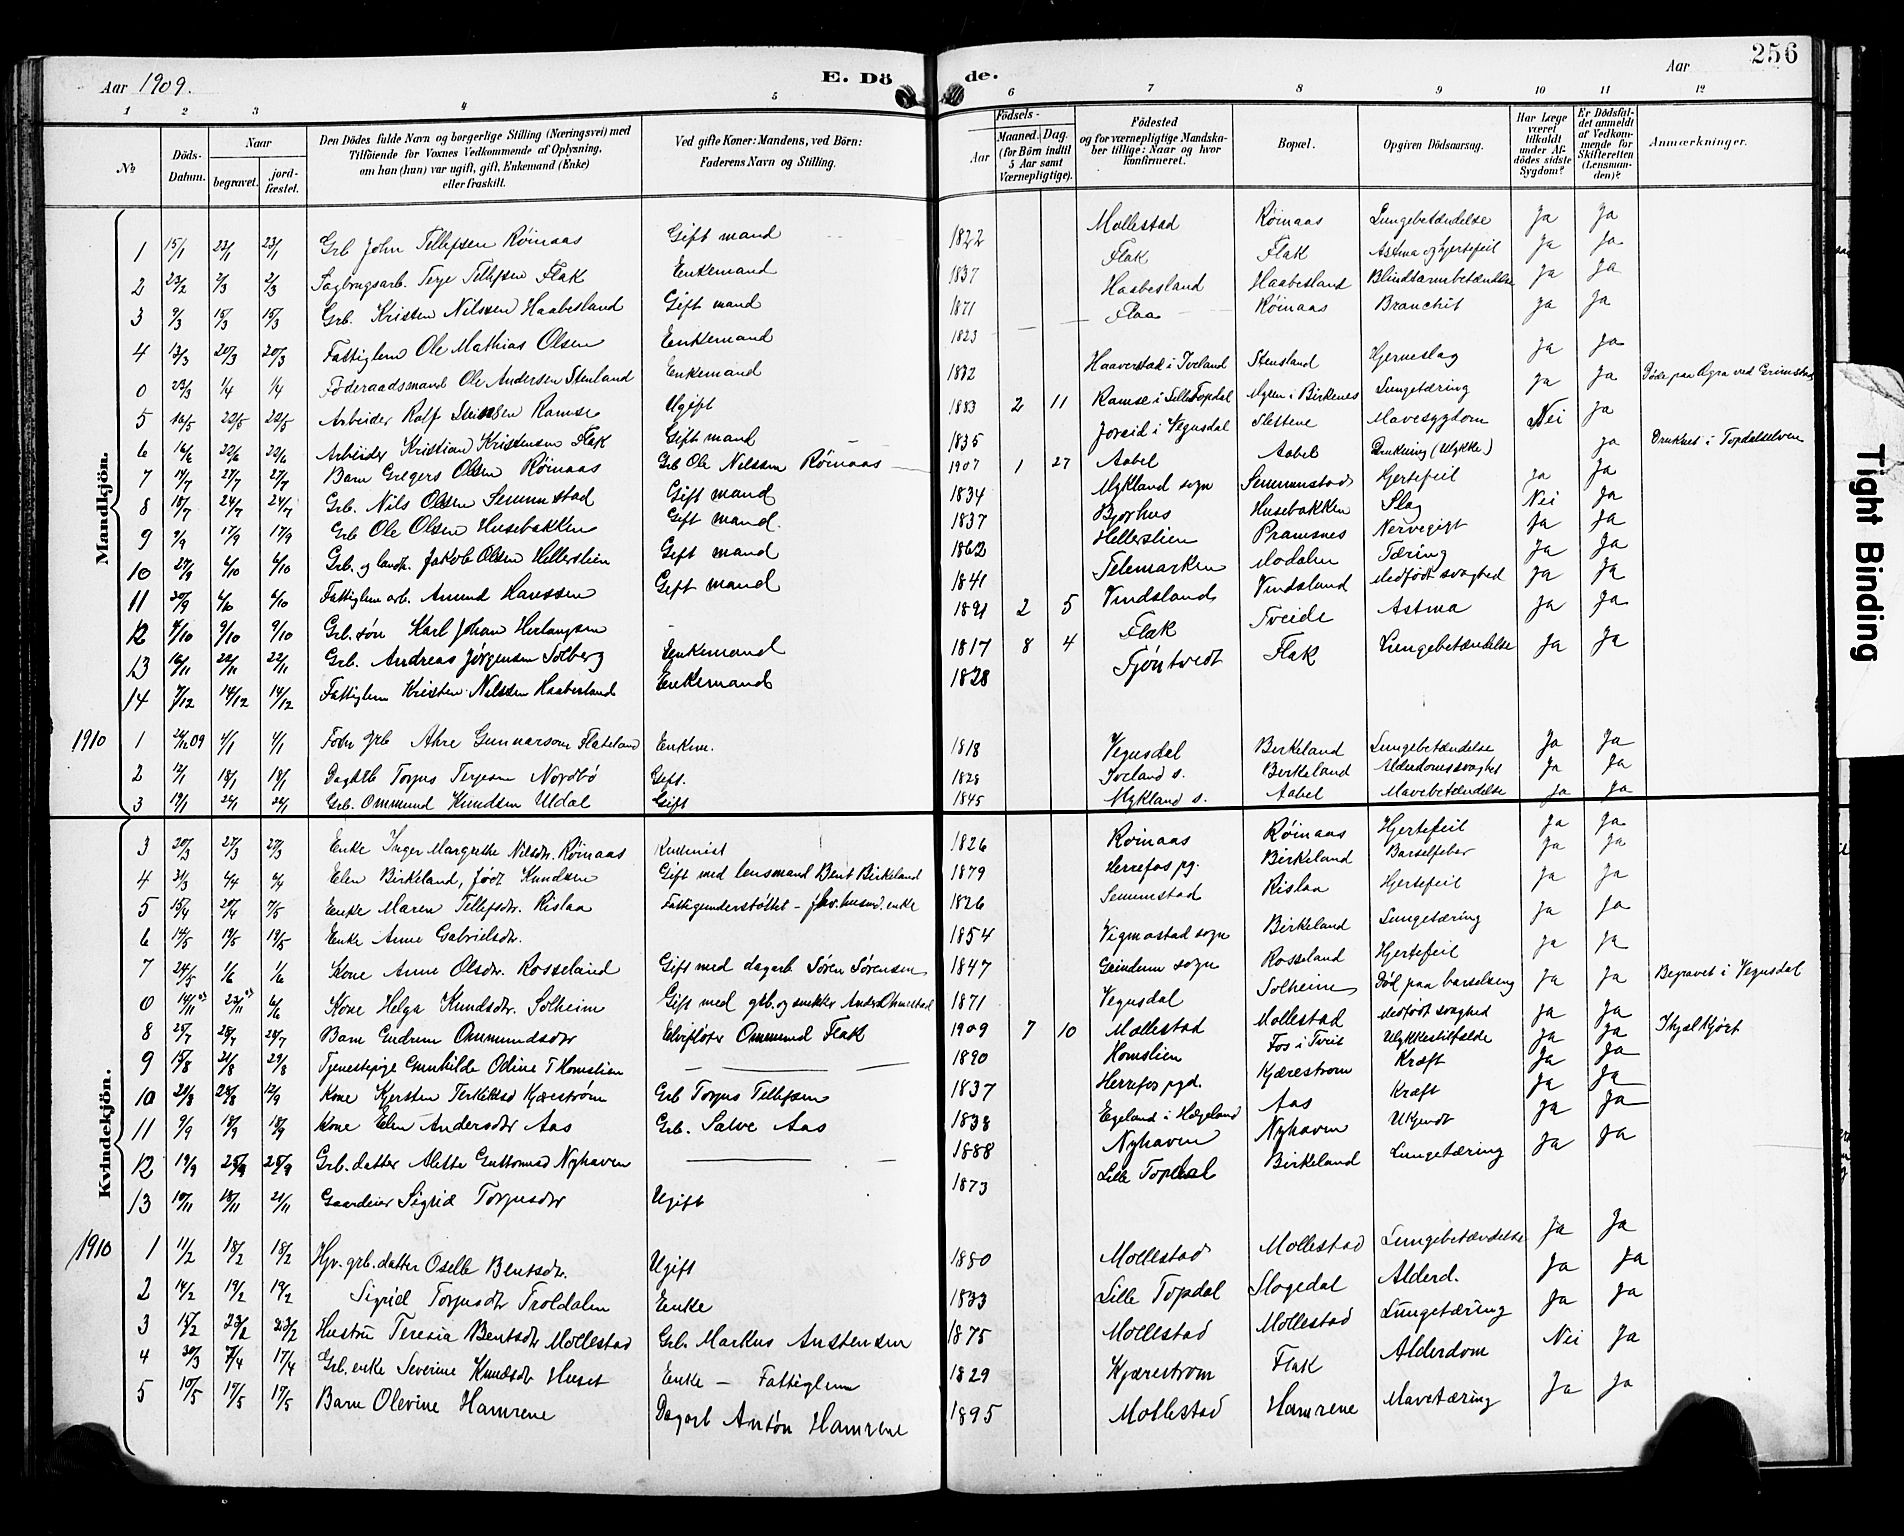 Aar 1909.
E. Dö
de.
Aar
256
1 2 3 4 5 6 7 8 9 10 11 12
№
Döds-Datum.
Naar
begravet.
jord-fæstet.
Den Dödes fulde Navn og borgerlige Stilling (Næringsvei) med Tilföiende for Voxnes Vedkommende af Oplysning, om han (hun) var ugift, gift, Enkemand (Enke) eller fraskilt.
Ved gifte Koner: Mandens, ved Börn: Faderens Navn og Stilling.
Födsels-
Aar
Maaned.
Dag.
(for Börn indtil 5 Aar samt Værnepligtige).
Födested og for værnepligtige Mandska-ber tillige: Naar og hvor konfirmeret.
Bopæl.
Opgiven Dödsaarsag.
Har Læge været tilkaldt under Af-dödes sidste Sygdom?
Er Dödsfal-det anmeldt af Vedkom-mende for Skifteretten (Lensman-den)?
Anmærkninger.
Mandkjön.
1 15/1 23/1 23/1 Grb. John Tellefsen Röinaas Gift mand 1822 Mollestad Röinaas Lungebetændelse Ja Ja
2 23/2 2/3 2/3 Sagbrugsarb. Terje Tellefsen Flak Enkemand 1837 Flak Flak Astma og hjertefeil Ja Ja
3 9/3 15/3 15/3 Grb. Kristen Nilssen Haabesland Gift mand 1871 Haabesland Haabesland Blindtarmbetændelse Ja Ja
4 13/3 20/3 20/3 Fattiglem Ole Mathias Olsen Enkemand 1823 Flaa Röinaas Bronchit Ja Ja
0 23/3 1/4 1/4 Föderaadsmand Ole Andersen Stensland Enkemand 1832 Haaverstad i Iveland Stensland Hjerneslag Ja Ja
5 16/5 22/5 22/5 Arbeider Rolf Ramse Ugift 1883 2 11 Ramse i Lille Topdal i Birkenes Lungetæring Ja Ja Döde paa Agra ved Grimstad
6 16/6 22/6 22/6 Arbeider Kristian Kristensen Flak Gift mand 1835 i Vegusdal Slettene Mavesygdom Nei Ja
7 14/7 27/7 27/7 Barn Gregers Olsen Röinaas Grb Ole Nilssen Röinaas 1907 1 27 Aabel Aabel Drukning (Ulykke) Ja Druknet i Topdalselven
8 18/7 24/7 24/7 Grb. Nils Olsen Senumstad Gift mand 1834 Mykland sogn Senumstad Hjertefeil Ja Ja
9 9/9 17/9 17/9 Grb Ole Olsen Husebakken Gift mand. 1837 Bjorhus Husebakken Slag Nei Ja
10 27/9 4/10 4/10 Grb. og landh. Jakob Olsen Hellerslien Gift mand 1862 Hellerslien Pramsnes Nervegigt Ja Ja
11 30/9 6/10 6/10 Fattiglem arb. Amund Hanssen Gift mand 1841 Telemarken Modalen Tæring Ja Ja
12 4/10 9/10 9/10 Grb. sön Karl Johan - 1891 2 5 Vindsland Vindsland Medfödt svaghed Ja Ja
13 16/11 22/11 22/11 Grb. Andreas Jørgensen Solberg Enkemand 1817 8 4 Flak Tveide Astma Ja Ja
14 7/12 14/12 14/12 Fattiglem Kristen Nilssen Haabesland Enkemand 1828 Fjöntvedt Flak Lungebetændelse Ja Ja
1910 1 09 4/1 4/1 grb Ahre Gunnarson Flateland Enkem. 1818 Vegusdal Birkeland Lungebetændelse Ja Ja
2 12/1 18/1 18/1 Torjus Terjesen Nordbö Gift. 1828 Iveland s. Birkeland Alderdomssvaghet Ja Ja
3 19/1 24/1 24/1 Grb. Ommund Knudsen Udal Gift 1845 Mykland s. Aabel Mavebetændelse Ja Ja
Kvindekjön.
3 20/3 27/3 27/3 Enke Inger Margrethe Nilsdr. Röinaas 1826 Röinaas Röinaas Hjertefeil Ja Ja
4 31/3 6/4 6/4 Elen Birkeland, født Knudsen Gift med lensmand Bent Birkeland 1879 Herrefos pg. Birkeland Barselfeber Ja Ja
5 15/4 20/4 7/5 Enke Maren Tellefsdr. Rislaa Fattigunderstöttet – fhv. husmd. enke 1826 Senumstad Rislaa Hjertefeil Ja Ja
6 14/5 19/5 19/5 Enke Anne Gabrielsdr. 1854 Vigmostad sogn Birkeland Lungetæring Ja Ja
7 24/5 1/6 1/6 Kone Anne Olsdr. Rosseland Gift med dagarb Sören Sörensen 1847 Grindum sogn Rosseland Hjertefeil Ja Ja
0 14/11 23/11 6/6 Kone Helga Knudsdr. Solheim Gift med grb. og snekker 1871 Vegusdal Solheim Död paa barselseng Ja Ja Begravet i Vegusdal
8 25/7 28/7 28/7 Barn Gudrun Ommundsdtr Elvefløter Ommund Flak 1909 7 10 Mollestad Mollestad Medfödt svaghed Ja Ja
9 15/8 21/8 29/8 Tjenestepige Gunhilde Odine T Homslien 1890 Homslien Fos i Tveit Ulykkestilfælde Ja Ja Ihjælkjört
10 20/8 28/8 12/9 Kone Kjersten Kjærestrøm Grb Torjus Tellefsen 1837 Herrefos pgd. Kjærestrom Kræft Ja Ja
11 9/9 18/9 18/9 Kone Elen Andersdtr Aas Grb. Salve Aas 1838 Egeland i Hægeland Aas Kræft Ja Ja
12 19/9 25/9 25/9 Grb. datter Alette Guttormsd Nyhaven 1888 Nyhaven Nyhaven Ukjendt Ja Ja
13 10/11 18/11 21/11 Gaardeier Sigrid Torjusdtr Ugift 1873 Lille Topdal Birkeland Lungetæring Ja Ja
1910 1 11/2 18/2 18/2 Hjv. grb. datter Oselle Bentsdr. Ugift 1880 Mollestad Mollestad Lungebetændelse Ja Ja
2 14/2 19/2 19/2 Sigrid Torjusdtr Troldalen Enke 1833 Lille Topdal Slogedal Alderd. Ja Ja
3 15/2 23/2 23/2 Hustru Teresia Bentsdtr Mollestad Grb. Markus Anstensen 1875 Mollestad Mollestad Lungetæring Ja Ja
4 30/3 7/4 17/4 Grb. enke Severine Knudsdtr Huset Enke – Fattiglem 1829 Kjærestrom Flak Alderdom Nei Ja
5 10/5 17/5 17/5 Barn Olevine Hamrene Dagarb Antón Hamrene 1895 Mollestad Hamrene Mavetæring Ja Ja
Tight Binding